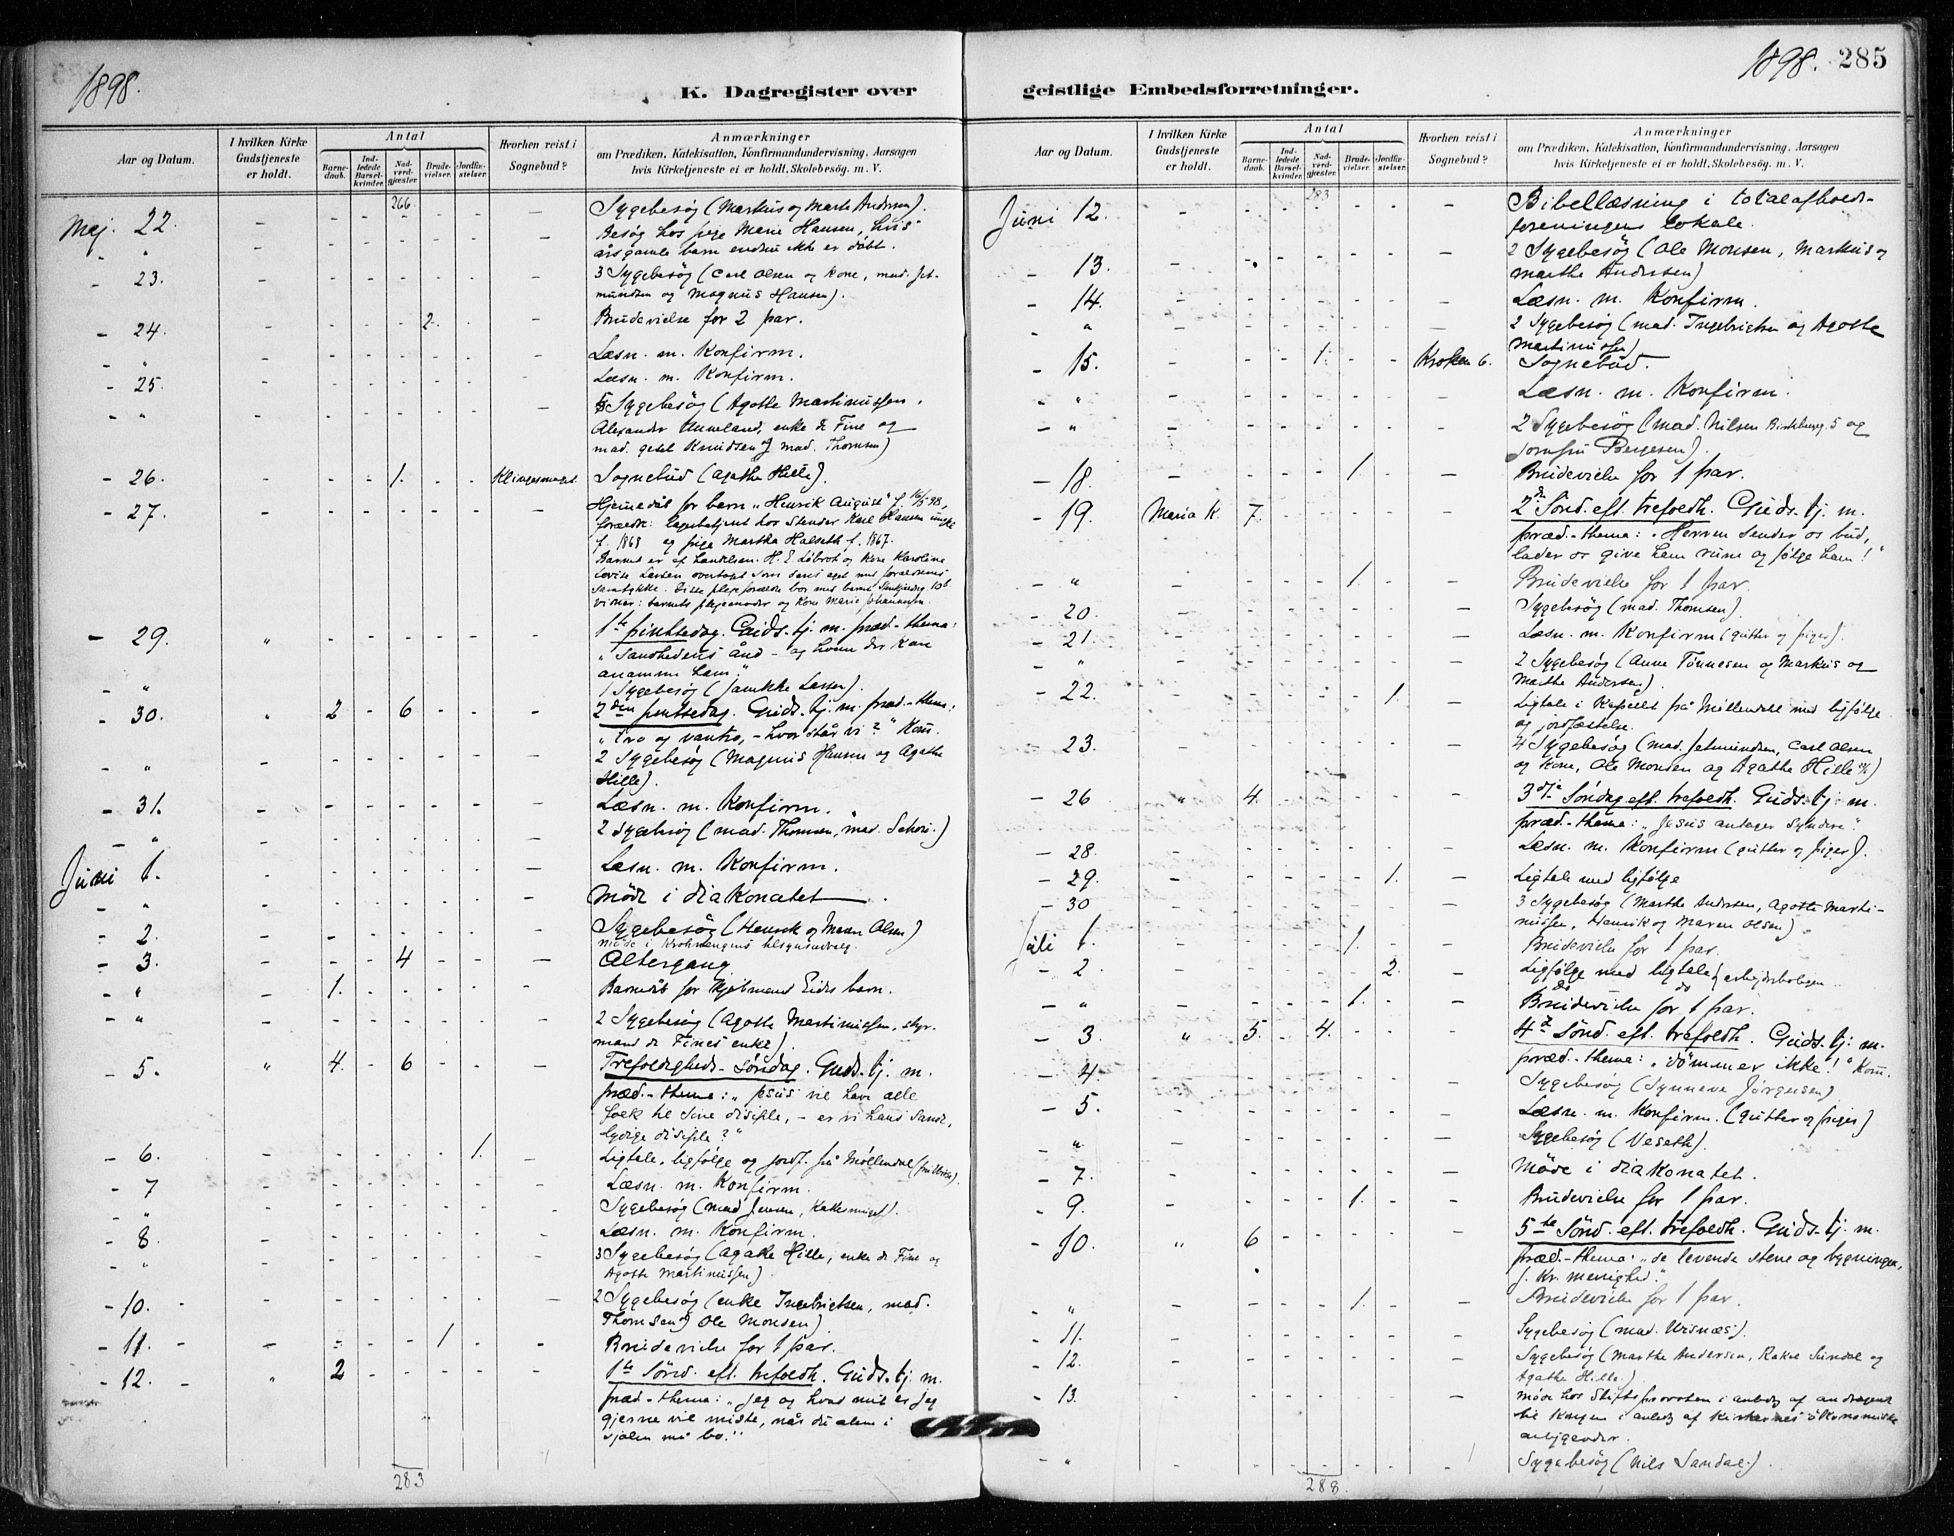 1898.
K. Dagregister over
Aar og Datum.
I hvilken Kirke Gudstjeneste er holdt.
Antal
Barnedaab.
Indledede Barselkvinder.
Nadverdgjæster.
Brudevielser.
Jordfæstelser.
Hvorhen reist i Sognebud?
Anmærkninger
om Prædiken, Katekisation, Konfirmandundervisning, Aarsagen
hvis Kirketjeneste ei er holdt, Skolebesøg. m. V.
266
Maj. 22. - - - - - - - Sygebesøg (Markus og Marte Andersen).
" - - - - - - - Besøg hos pige Marie Hansen, hvis
årsgamle barn endnu ikke er døbt.
- 23. - - - - - - - 3 Sygebesøg (Carl Olsen og Kone, mad. Jetmundsen og Magnus Hansen).
- 24. - - - - 2. - - Brudevielse for 2 par.
" - - - - - - - Læsn. m. Konfirm.
- 25. - - - - - - - Læsn. m. Konfirm.
- " - - - - - - - Sygebesøg (Agathe Martinussen,
Alexander Unneland, enke de Fine og
mad. Knudsen og mad. Thomsen)
- 26. - - - 1. - - Klingesmuget. Sognebud (Agathe Hille).
- 27. - - - - - - - Hjemmedåb for barn "Henrik August" f. 16/5 98,
forældr: Karl Hansen
f. 1868 og pige Martha Halseth f. 1867.
Barnet er af H. E. og Kone Karoline
Lovise Larsen overtaget som deres eget med forældrenes
samtykke. Disse plejeforældre bor med barnet
vidner: barnets plejemoder og Kone Marie Johannesen.
- 29. " - - - - - - 1ste pintsedag. Guds-tj. m. præd.-thema:
"Sandhedens ånd - og hvem der kan
anamme ham."
" 1 Sygebesøg (Jannikke Larsen).
- 30. " 2 - 6 - - - 2den pintsedag. Guds.tj. m. præd.-thema:
"Tro og vantro, - hvor står vi?" Kom.
- " - - - - - - - 2 Sygebesøg (Magnus Hansen og Agathe
Hille).
- 31. - - - - - - - Læsn. m. Konfirm.
- " - - - - - - - 2 Sygebesøg (mad. Thomsen, mad. )
Juni 1. - - - - - - - Læsn. m. Konfirm.
- " - - - - - - - Møde i diakonatet
- 2. - - - - - - - Sygebesøg (Henrik og Maren Olsen)
Møde i Krohnengens tilsynsudvalg.
- 3. - - - 4 - - - Altergang
- " - 1. - - - - - Barnedåb for Kjøbmand Eides barn.
- " - - - - - - - 2 Sygebesøg (Agathe Martinussen, styrmand de Fines enke).
- 5. " 4. - 6 - - - Trefoldigheds-søndag. Guds.tj. m.
præd.-thema: "Jesus vil have alle
folk til sine disciple, - er vi hans sanddydige disciple?"
- 6. - - - - - 1. - Ligtale, ligfølge og jordf. på Møllendal
- 7 - - - - - - - Læsn. m. Konfirm.
" - - - - - - - Sygebesøg (mad Jensen, ).
- 8. - - - - - - - Læsn. m. Konfirm.
- " - - - - - - - 3 Sygebesøg (Agathe Hille, enke de Fine og
Agathe Martinussen).
- 10. - - - - - - - 2 Sygebesøg (enke Ingebrigtsen, mad.
Thomsen og Ole Monsen)
- 11. - - - - 1 - - Brudevielse for 1 par.
- 12. " 2 - - - - - 1ste Sønd. eft. trefoldh. Guds-tj. m.
præd-thema: "Jeg og hvad mit er jeg
gjerne vil miste, når du alene i
sjælen må bo."
283
1898. 285
geistlige Embedsforretninger.
Aar og Datum.
I hvilken Kirke Gudstjeneste er holdt.
Antal
Barnedaab.
Indledede Barselkvinder.
Nadverdgjæster.
Brudevielser.
Jordfæstelser.
Hvorhen reist i Sognebud?
Anmærkninger
om Prædiken, Katekisation, Konfirmandundervisning, Aarsagen
hvis Kirketjeneste ei er holdt, Skolebesøg. m. V.
283
Juni 12. - - - - - - - Bibellæsning i totalafholdsforeningens lokale.
- 13. - - - - - - 2 Sygebesøg (Ole Monsen, Markus og
Marthe Andersen)
- 14. - - - - - - - Læsn. m. Konfirm.
" - - - - - - - 2 Sygebesøg (mad. Ingebrigtsen og Agathe
Martinussen)
- 15. - - - 1. - - Kroken 6. Sognebud.
- " - - - - - - - Læsn. m. Konfirm.
- " - - - - - - - 2 Sygebesøg (mad. Nilsen 5 og
jomfru Børgesen).
- 18. - - - - 1. - - Brudevielse for 1 par.
- 19. Maria K. 7. - - - - - 2den Sønd. eft. trefoldh. Guds.tj. m.
præd.-thema: "Herren sender os bud,
lader os give ham rum og følge ham!"
- " - - - - 1. - - Brudevielse for 1 par
- 20 - - - - - - - Sygebesøg (mad. Thomsen).
- 21. - - - - - - - Læsn. m. Konfirm (gutter og piger).
- " - - - - - - - 2 Sygebesøg (Anne Tønnesen og Markus og
Marthe Andersen).
- 22. - - - - - 1. - Ligtale i Kapellet på Møllendal med ligfølge
og jordfæstelse.
- 23. - - - - - - - 4 Sygebesøg (mad. Jetmundsen, Carl Olsen
og Kone, Ole Monsen og Agathe Hille)
- 26 " 4. - - - - - 3die Søndag eft. trefoldh. Guds.tj. m.
præd.-thema: "Jesus antager syndere."
- 28. - - - - - - - Læsn. m. Konfirm (gutter og piger).
- 29. - - - - - 1. - Ligtale med ligfølge
- 30 - - - - - - - 3 Sygebesøg (Marthe Andersen, Agathe Martinussen, Henrik og Maren Olsen)
Juli 1. - - - - 1. - - Brudevielse for 1 par.
- 2. - - - - - 2. - Ligfølge med ligtale
- " - - - - 1. - - Brudevielse for 1 par.
- 3. " 5. - 4. - - - 4de Sønd. eft. trefoldh. Guds.tj. m.
præd.-thema: "dømmer ikke!" Kom.
- 4. - - - - - - - Sygebesøg (Synneve Jørgensen)
- 5. - - - - - - - Læsn. m. Konfirm. (gutter og piger)
" - - - - - - - Sygebesøg (Veseth).
- 7. - - - - - - - Møde i diakonatet.
- 9. - - - - 1. - - Brudevielse for 1 par.
- 10. " 6 - - - - - 5te Sønd. eft. trefoldh. Guds-tj. m.
præd.-thema: "de levende stene og bygningen,
J. Kr. menighed."
" - - - - 1. - - Brudevielse for 1 par.
- 11. - - - - - - - Sygebesøg (mad. Urisnæs).
- 12. - - - - - - - Sygebesøg (Marthe Andersen, Rakel Sundal og
Agathe Hille.)
- 13. - - - - - - - Møde hos Stiftsprovsten i anledg af andragende
til Kongen i anledg af Kirkernes økonomiske
anliggender.
- " - - - - - - - Sygebesøg (Nils Sandal.)
288.